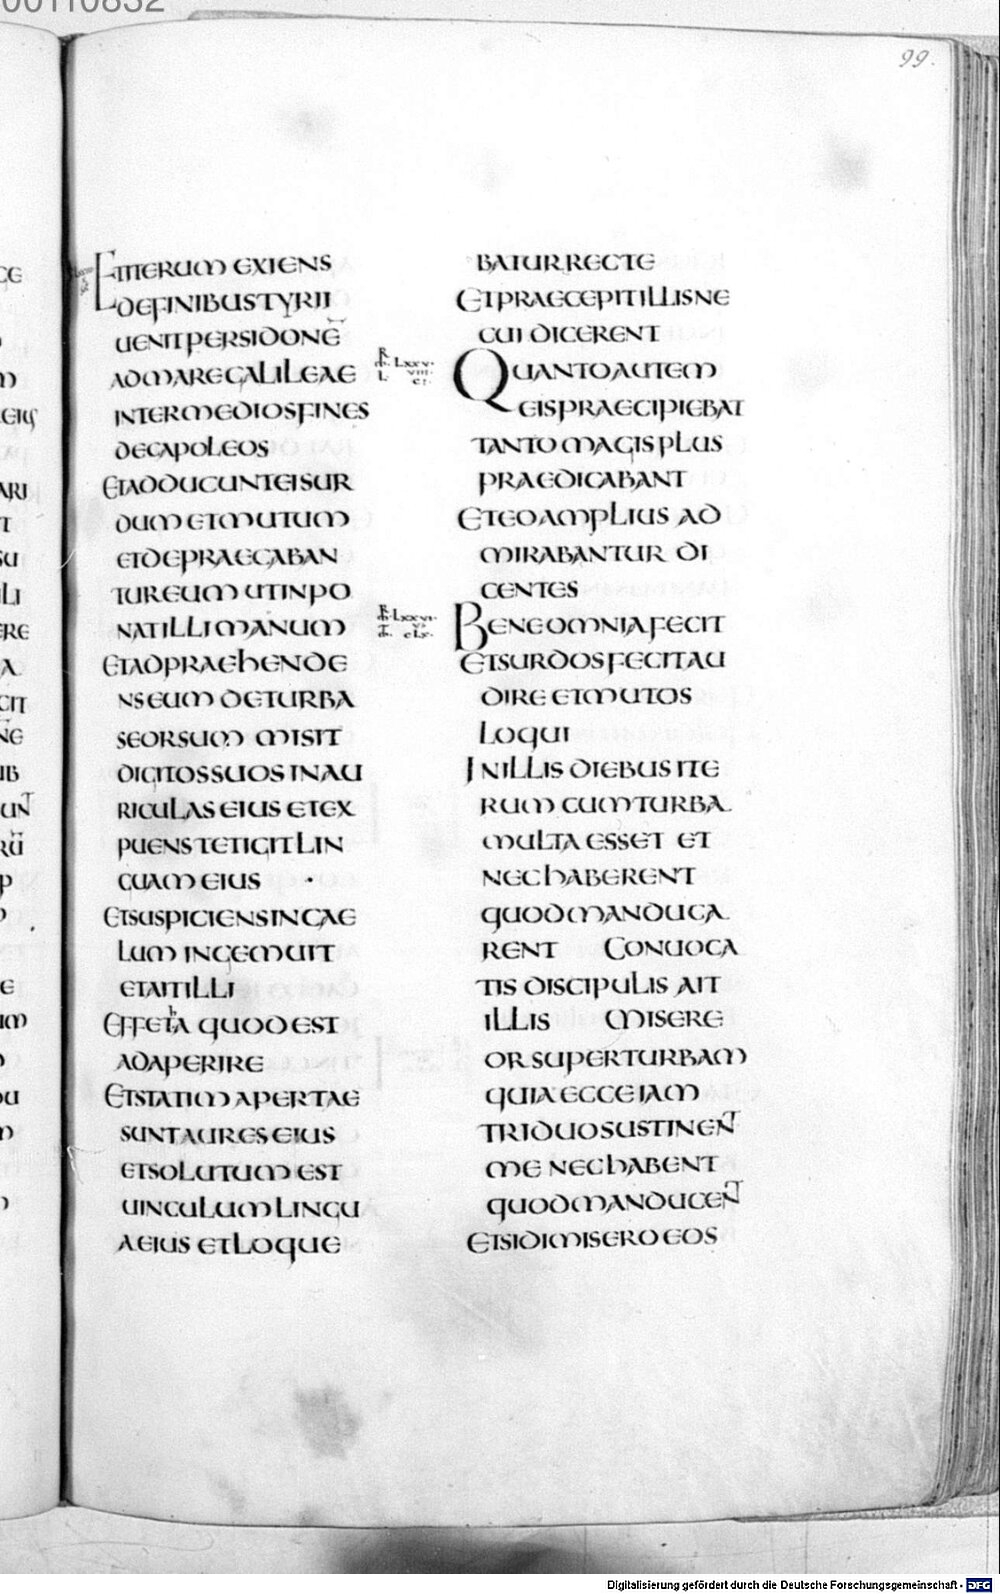 00110832
99.
ETITERUM EXIENS
DEFINIBUSTYRII
UENITPERSIDONE̅
ADMAREGALILEAE
INTERMEDIOSFINES
DECAPOLEOS
ETADDUCUNTEISUR
DUMETMUTUM
ETDEPRAECABAN
TUREUMUTINPO
NATILLIMANUM
ETADPRAEHENDE
NSEUMDETURBA
SEORSUM MISIT
DIGITOSSUOSINAU
RICULASEIUSETEX
PUENSTETIGITLIN
GUAMEIUS
ETSUSPICIENSINCAE
LUMINGEMUIT
ETAITILLI
EFFETHA QUODEST
ADAPERIRE
ETSTATIMAPERTAE
SUNTAURESEIUS
ETSOLUTUMEST
UINCULUMLINGU
AEIUSETLOQUE
BATURRECTE
ETPRAECEPITILLISNE
CUIDICERENT
QUANTOAUTEM
EISPRAECIPIEBAT
TANTOMAGISPLUS
PRAEDICABANT
ETEOAMPLIUS AD
MIRABANTUR DI
CENTES
BENEOMNIAFECIT
ETSURDOSFECITAU
DIREETMUTOS
LOQUI
INILLISDIEBUSITE
RUMCUMTURBA
MULTAESSET ET
NECHABERENT
QUODMANDUCA
RENT CONUOCA
TISDISCIPULIS AIT
ILLIS MISERE
ORSUPERTURBAM
QUIAECCEIAM
TRIDUOSUSTINENT
MENECHABENT
QUODMANDUCENT
ETSIDIMISEROEOS
Digitalisierung gefördert durch die Deutsche Forschungsgemeinschaft - DFG